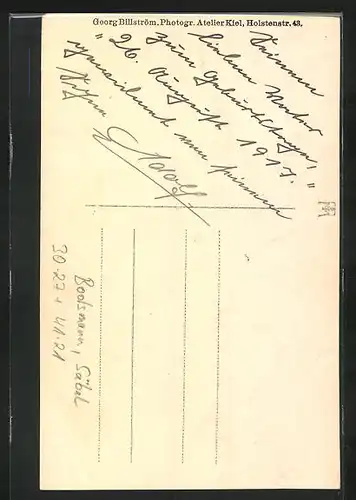 Georg Billström, Photogr. Atelier Kiel, Holstenstr. 43.
Seinem
lieben Vater
zum Geburtstage,
"26. August 1917."
gewidmet von seinem
Sohn
Adolf.
Bootsmann, Säbel
30-27+41-21